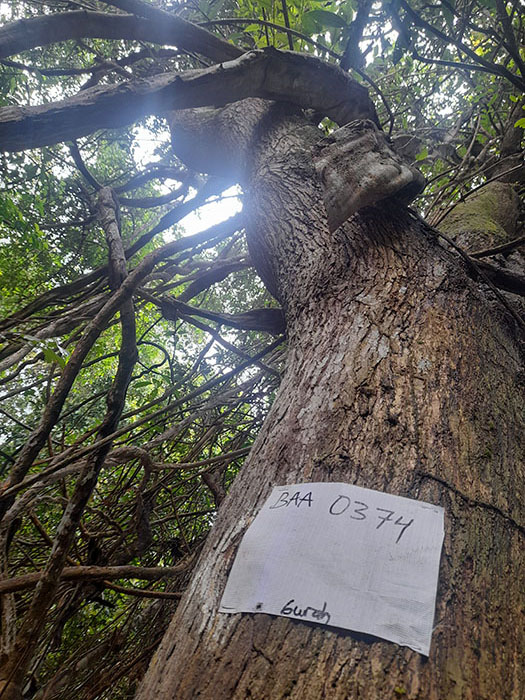 BAA 0374
Gurah